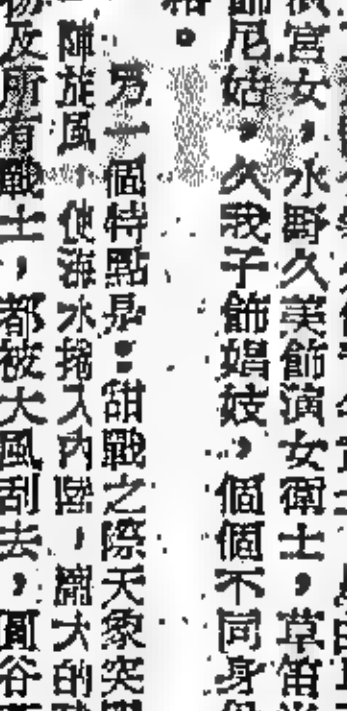 宮女，水野久美飾演女衛士，草笛
飾尼姑，久我子飾娼妓，個個不同身
。
另一個特點是：甜戰之際天象突
陣旋風，使海水捲入內陸，大的
及所有戰士，都被大風刮去，圓谷